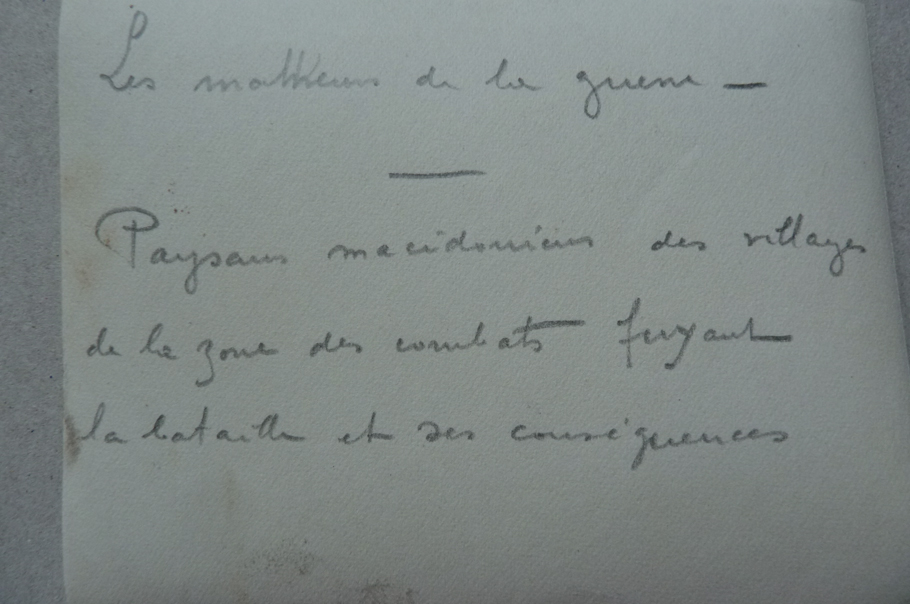 Les malheurs de la guerre —
Paysans macédoniens des villages
de la zone des combats fuyant
la bataille et ses conséquences